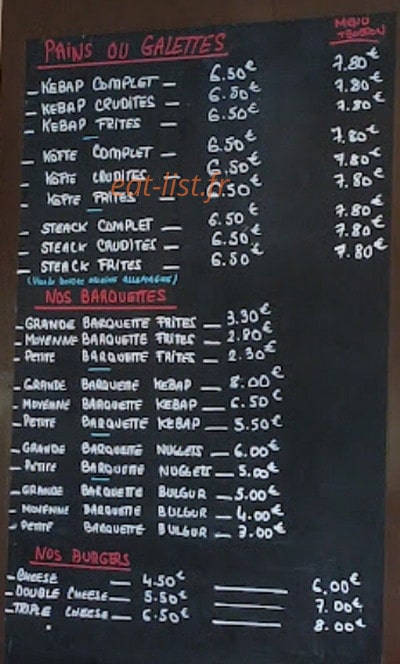 PAINS OU GALETTES MENU BOISSON
KEBAP COMPLET — 6.50€ 7.80€
KEBAP CRUDITES — 6.50€ 7.80€
KEBAP FRITES — 6.50€ 7.80€
KÖFTE COMPLET — 6.50€ 7.80€
KÖFTE CRUDITES — 6.50€ 7.80€
KÖFTE FRITES — 6.50€ 7.80€
eat-list.fr
STEACK COMPLET — 6.50€ 7.80€
STEACK CRUDITES — 6.50€ 7.80€
STEACK FRITES — 6.50€ 7.80€
NOS BARQUETTES
– GRANDE BARQUETTE FRITES — 3.30€
– MOYENNE BARQUETTE FRITES — 2.80€
– PETITE BARQUETTE FRITES — 2.30€
– GRANDE BARQUETTE KEBAP — 8.00€
– MOYENNE BARQUETTE KEBAP — 6.50€
– PETITE BARQUETTE KEBAP — 5.50€
– GRANDE BARQUETTE NUGGETS — 6.00€
– PETITE BARQUETTE NUGGETS — 5.00€
– GRANDE BARQUETTE BULGUR — 5.00€
– MOYENNE BARQUETTE BULGUR — 4.00€
– PETITE BARQUETTE BULGUR — 3.00€
NOS BURGERS
– CHEESE — 4.50€ — 6.00€
– DOUBLE CHEESE — 5.50€ — 7.00€
– TRIPLE CHEESE — 6.50€ — 8.00€